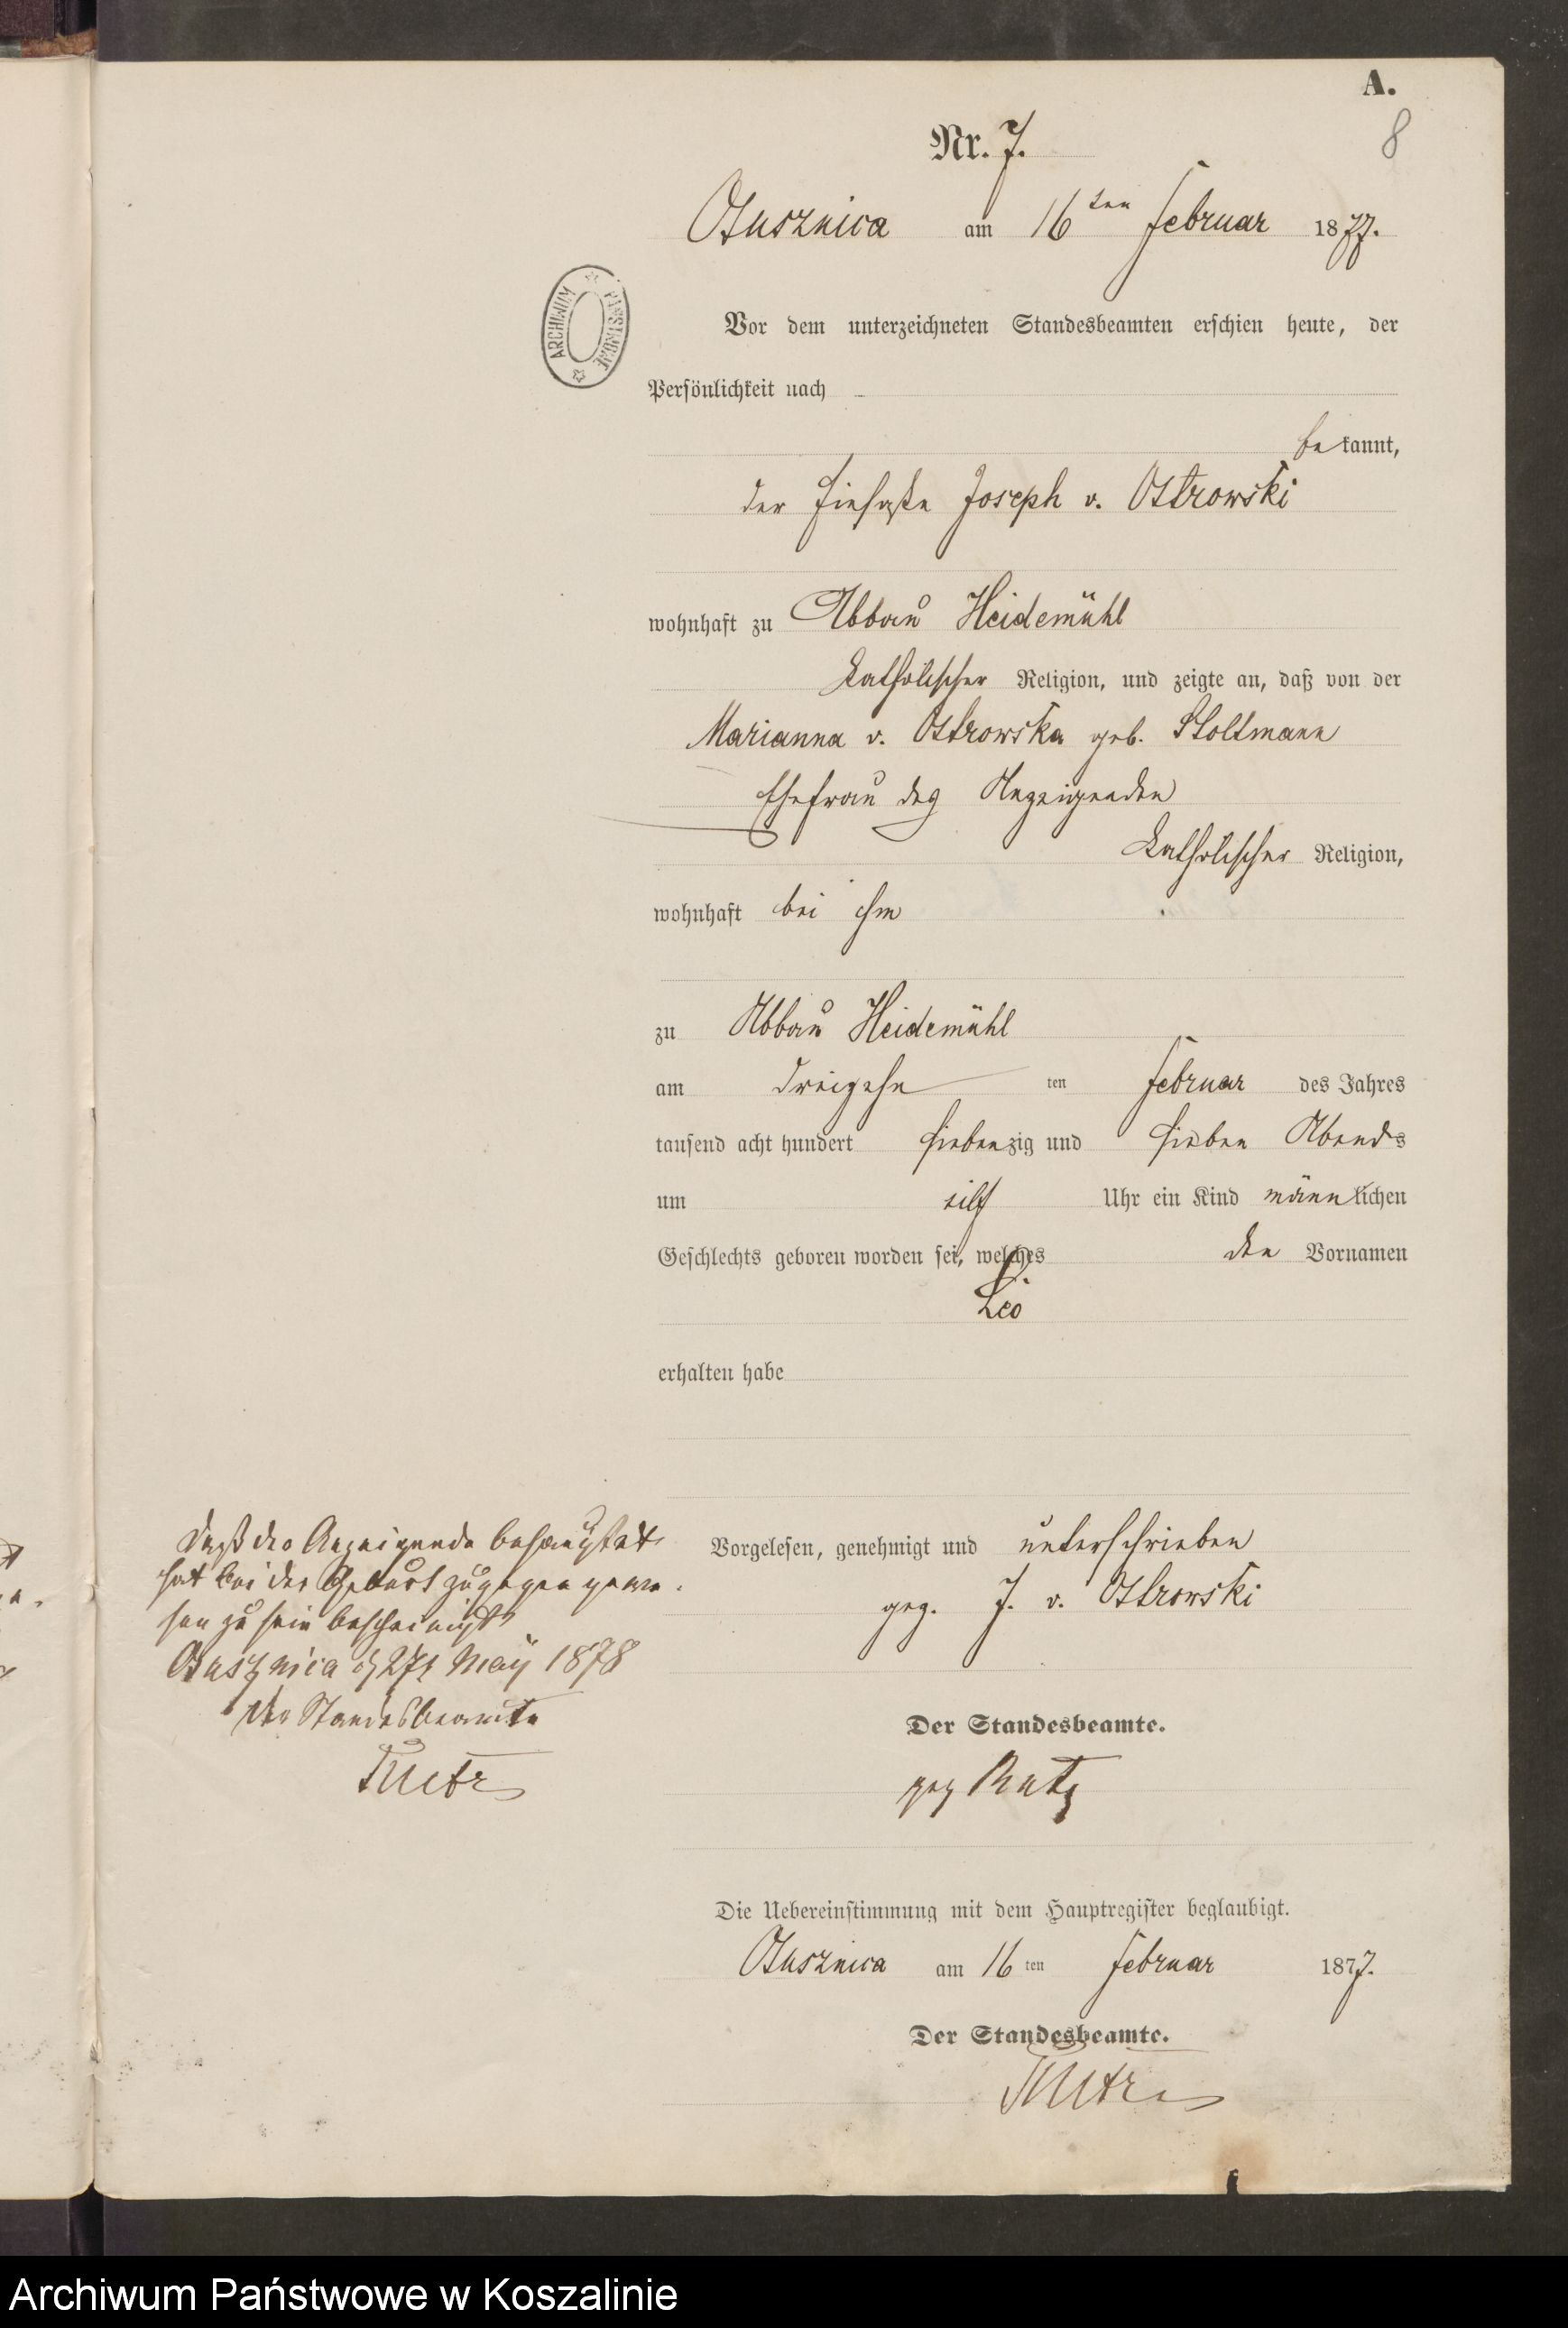 A.
8
Nr. 7.
Ossusznica am 16ten Februar 1877.
ARCHIWUM PAŃSTWOWE
Vor dem unterzeichneten Standesbeamten erschien heute, der
Persönlichkeit nach
bekannt,
der Einsaße Joseph v. Ostrowski
wohnhaft zu Abbau Heidemühl
katholischer Religion, und zeigte an, daß von der
Marianna v. Ostrowska geb. Stoltmann
Ehefrau des Anzeigenden
katholischer Religion,
wohnhaft bei ihm
zu Abbau Heidemühl
am dreizehn ten Februar des Jahres
tausend acht hundert siebenzig und sieben Abends
um eilf Uhr ein Kind männlichen
Geschlechts geboren worden sei, welches den Vornamen
Leo
erhalten habe
Vorgelesen, genehmigt und unterschrieben
gez. J. v. Ostrowski
Der Standesbeamte.
gez
Daß der Anzeigende behauptet
hat bei der Geburt zugegen gewe-
sen zu sein bescheinigt
Ossusznica d 27t May 1878
Der Standesbeamte
Die Uebereinstimmung mit dem Hauptregister beglaubigt.
Ossusznica am 16 ten Februar 1877.
Der Standesbeamte.
Archiwum Państwowe w Koszalinie